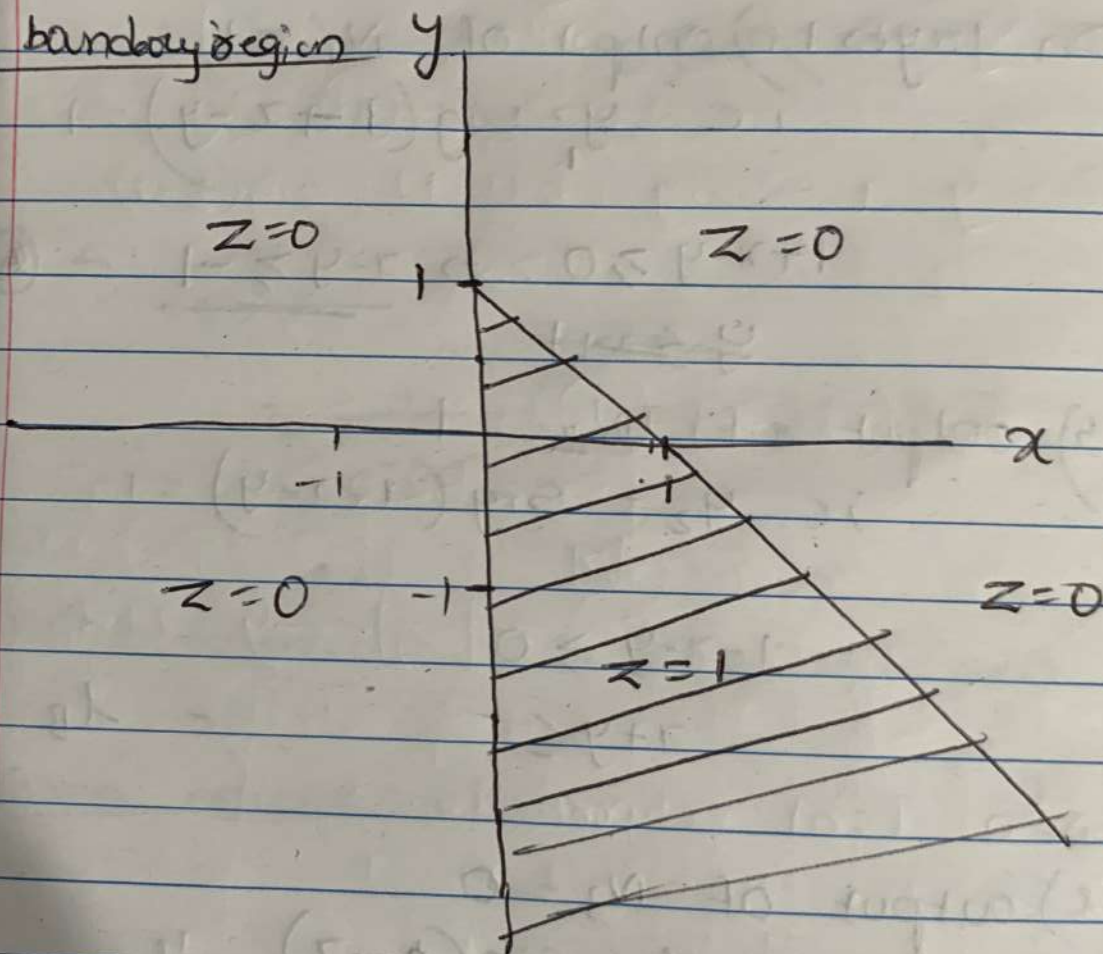 bandouy region y
z=0 z=0
1
x
-1 1
z=0 -1 z=0
z=1